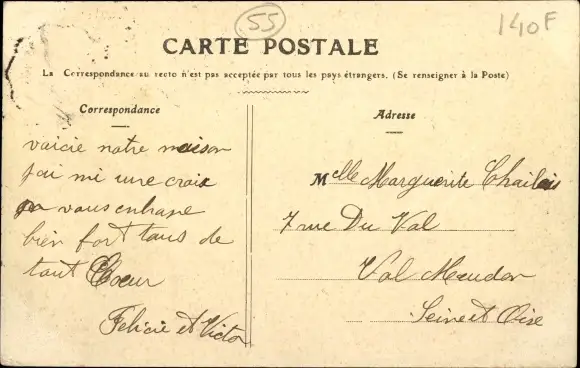 55
140F
CARTE POSTALE
La Correspondance au recto n'est pas acceptée par tous les pays étrangers. (Se renseigner à la Poste)
Correspondance
Adresse
vaicie notre maison
jai mi une croix
vous enbrase
bien fort tous de
tout Coeur
Félicie et Victor
Melle Marguerite
7 rue Du Val
Val Meudon
Seine et Oise